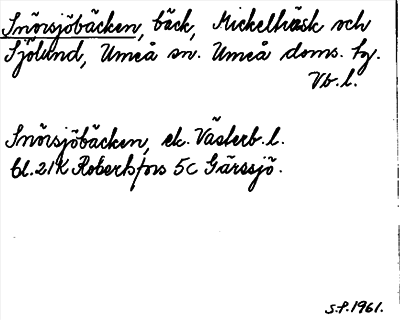 Snörsjöbäcken, bäck, Mickelträsk och
Sjölund, Umeå sn. Umeå doms. tg.
Vb. l.
Snörsjöbäcken, ek. Västerb. l.
bl. 21K Robertsfors 5c Gärssjö.
S.P. 1961.